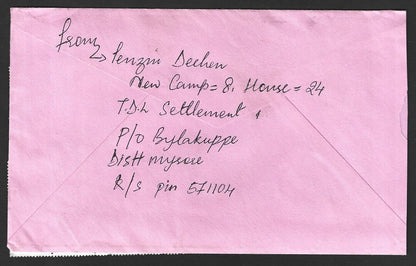 from
Tenzin Dechen
New Camp = 8, House = 24
T.D.L Settlement,
P/o Bylakuppe
Distt mysore
K/s pin 571104